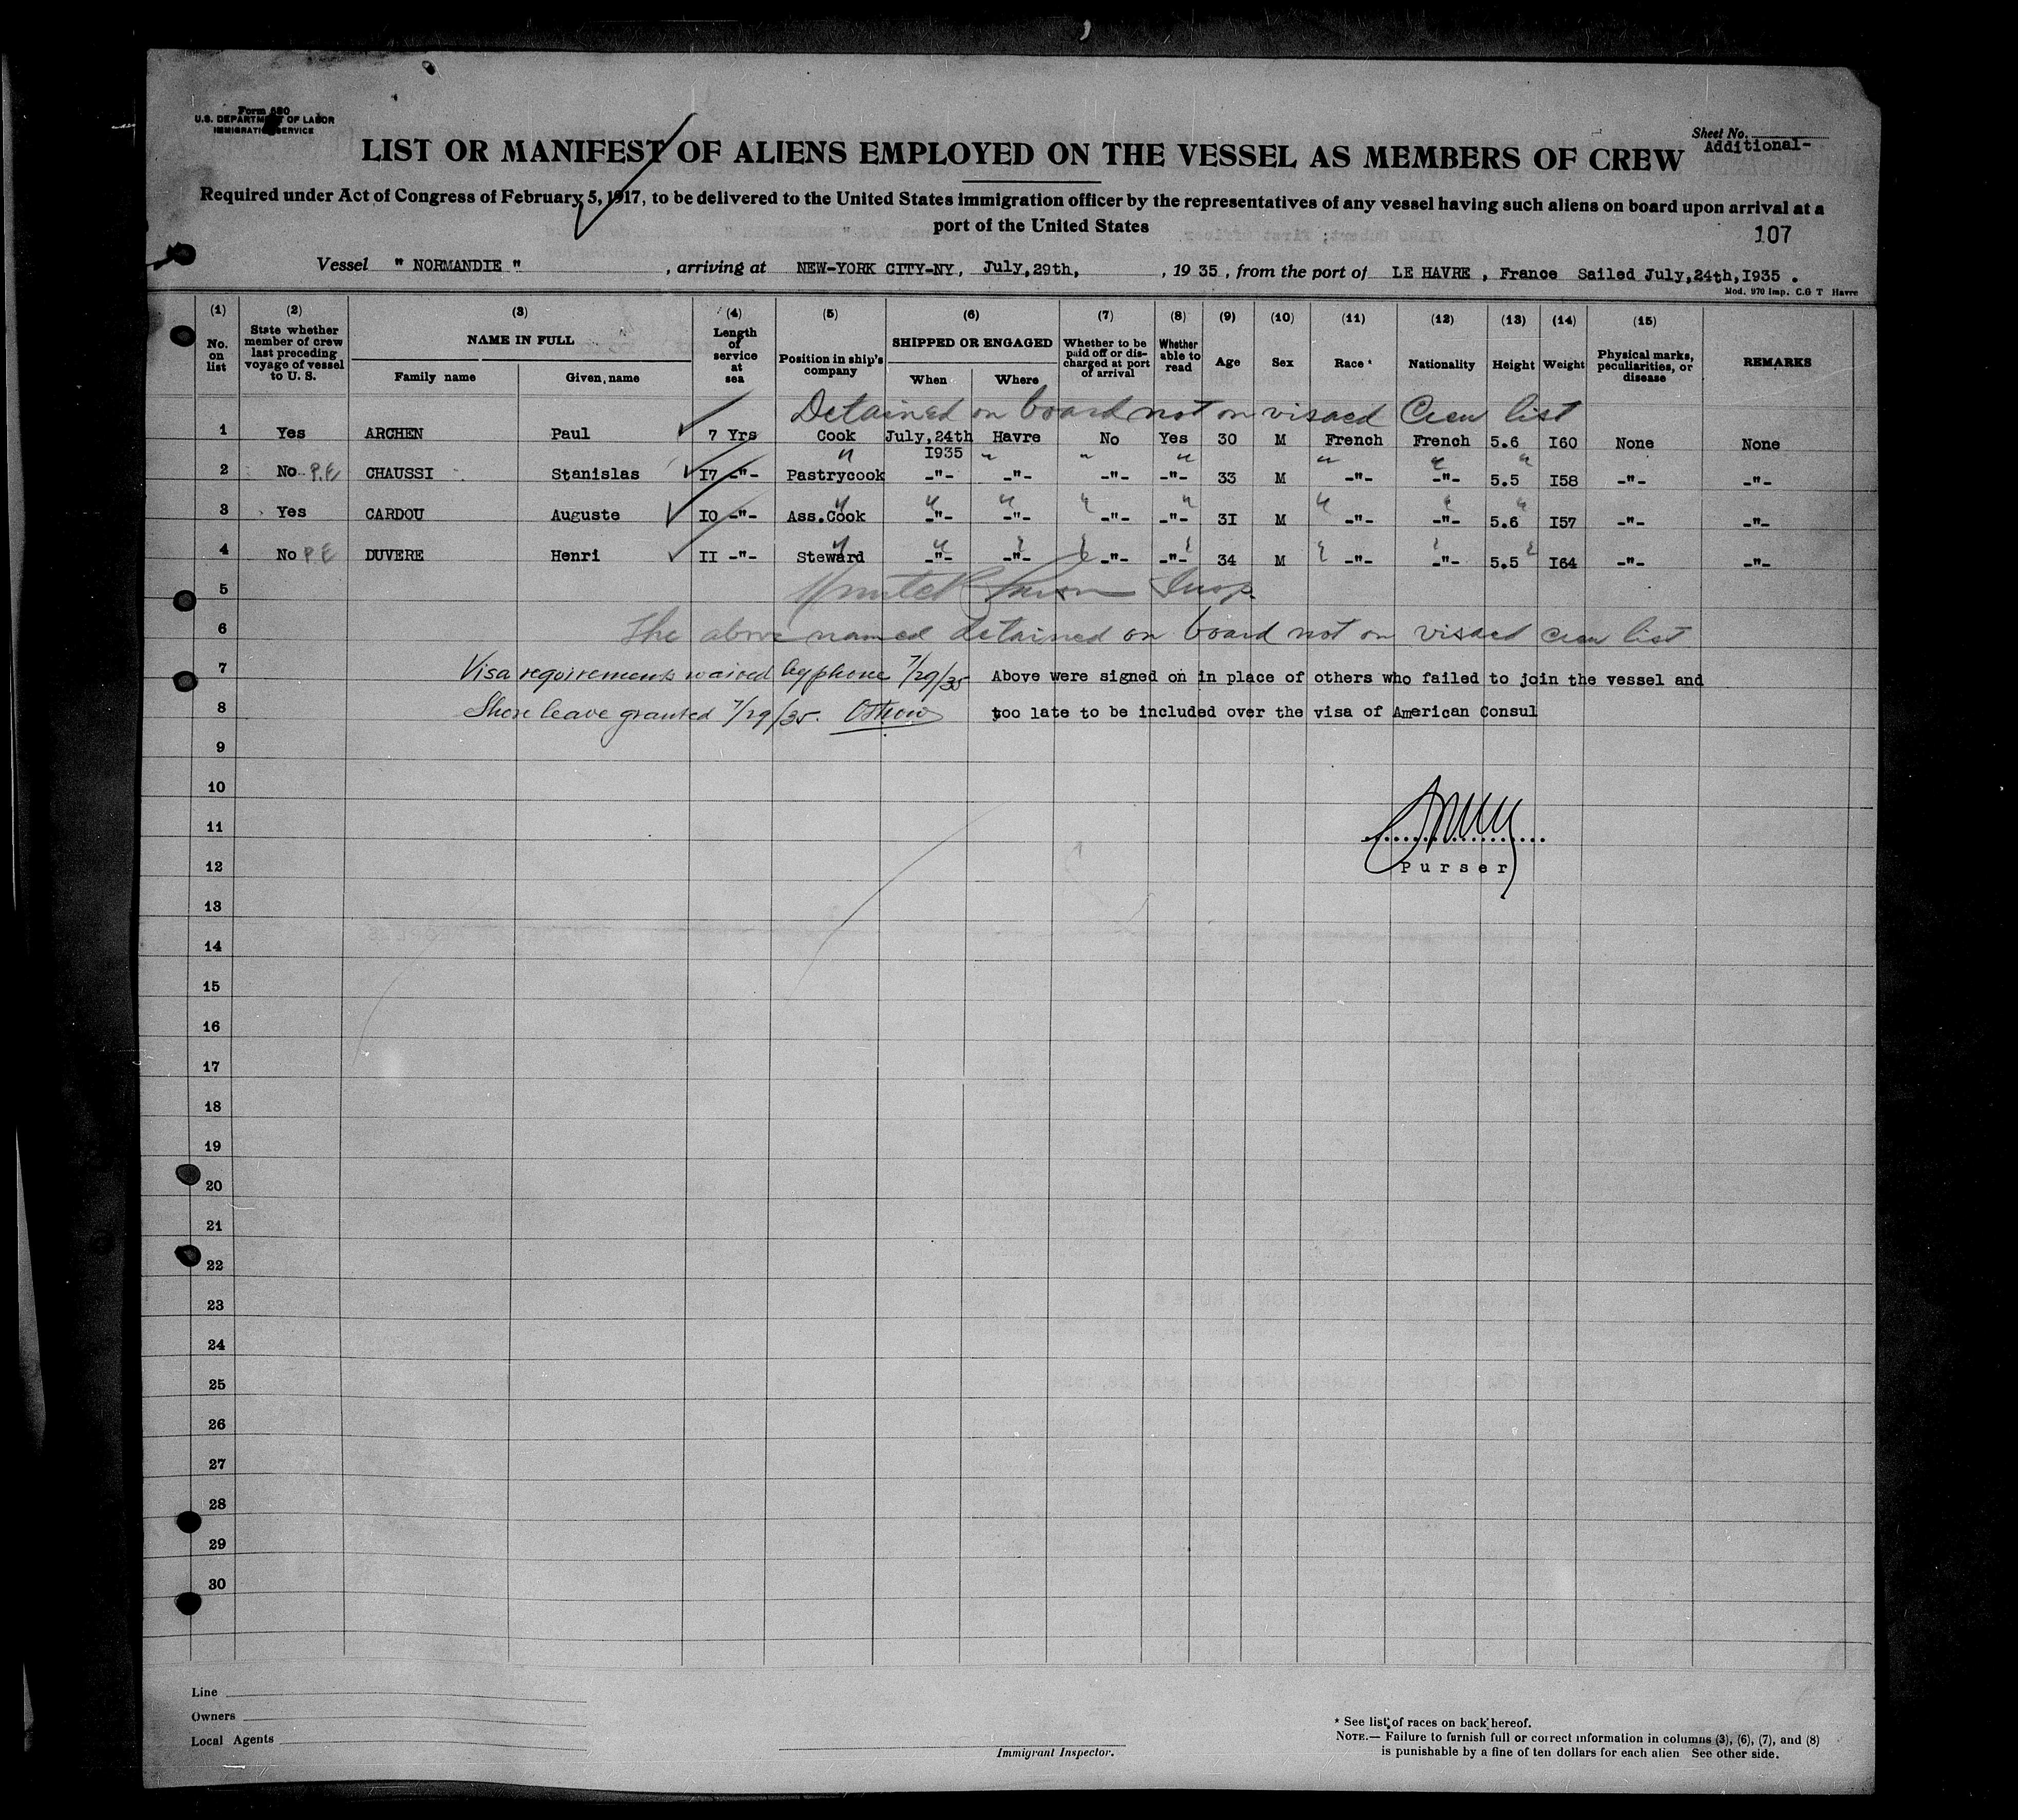 Form 680
U.S. DEPARTMENT OF LABOR
IMMIGRATION SERVICE
Sheet No.
Additional-
LIST OR MANIFEST OF ALIENS EMPLOYED ON THE VESSEL AS MEMBERS OF CREW
Required under Act of Congress of February 5, 1917, to be delivered to the United States immigration officer by the representatives of any vessel having such aliens on board upon arrival at a
port of the United States
107
Vessel " NORMANDIE " , arriving at NEW-YORK CITY-NY, July,29th, , 19 35 , from the port of LE HAVRE , France Sailed July,24th,I935 .
Mod. 970 Imp. C.G T Havre
(1) (2) (3) (4) (5) (6) (7) (8) (9) (10) (11) (12) (13) (14) (15)
No. on list State whether member of crew last preceding voyage of vessel to U. S. NAME IN FULL Length of service at sea Position in ship's company SHIPPED OR ENGAGED Whether to be paid off or discharged at port of arrival Whether able to read Age Sex Race * Nationality Height Weight Physical marks, peculiarities, or disease REMARKS
Family name Given name When Where
Detained on board not on visaed Crew list
1 Yes ARCHEN Paul 7 Yrs Cook July,24th Havre No Yes 30 M French French 5.6 I60 None None
I935
2 No P.E CHAUSSI Stanislas I7 -"- Pastrycook -"- -"- -"- -"- 33 M -"- -"- 5.5 I58 -"- -"-
3 Yes CARDOU Auguste IO -"- Ass.Cook -"- -"- -"- -"- 3I M -"- -"- 5.6 I57 -"- -"-
4 No P E DUVERE Henri II -"- Steward -"- -"- -"- -"- 34 M -"- -"- 5.5 I64 -"- -"-
5 Insp.
6 The above named detained on board not on visaed crew list
7 Visa requirements waived by phone 7/29/35 Above were signed on in place of others who failed to join the vessel and
8 Shore leave granted 7/29/35. too late to be included over the visa of American Consul
9
10
11
12 Purser
13
14
15
16
17
18
19
20
21
22
23
24
25
26
27
28
29
30
Line
Owners
Local Agents
Immigrant Inspector.
* See list of races on back hereof.
NOTE.— Failure to furnish full or correct information in columns (3), (6), (7), and (8)
is punishable by a fine of ten dollars for each alien See other side.